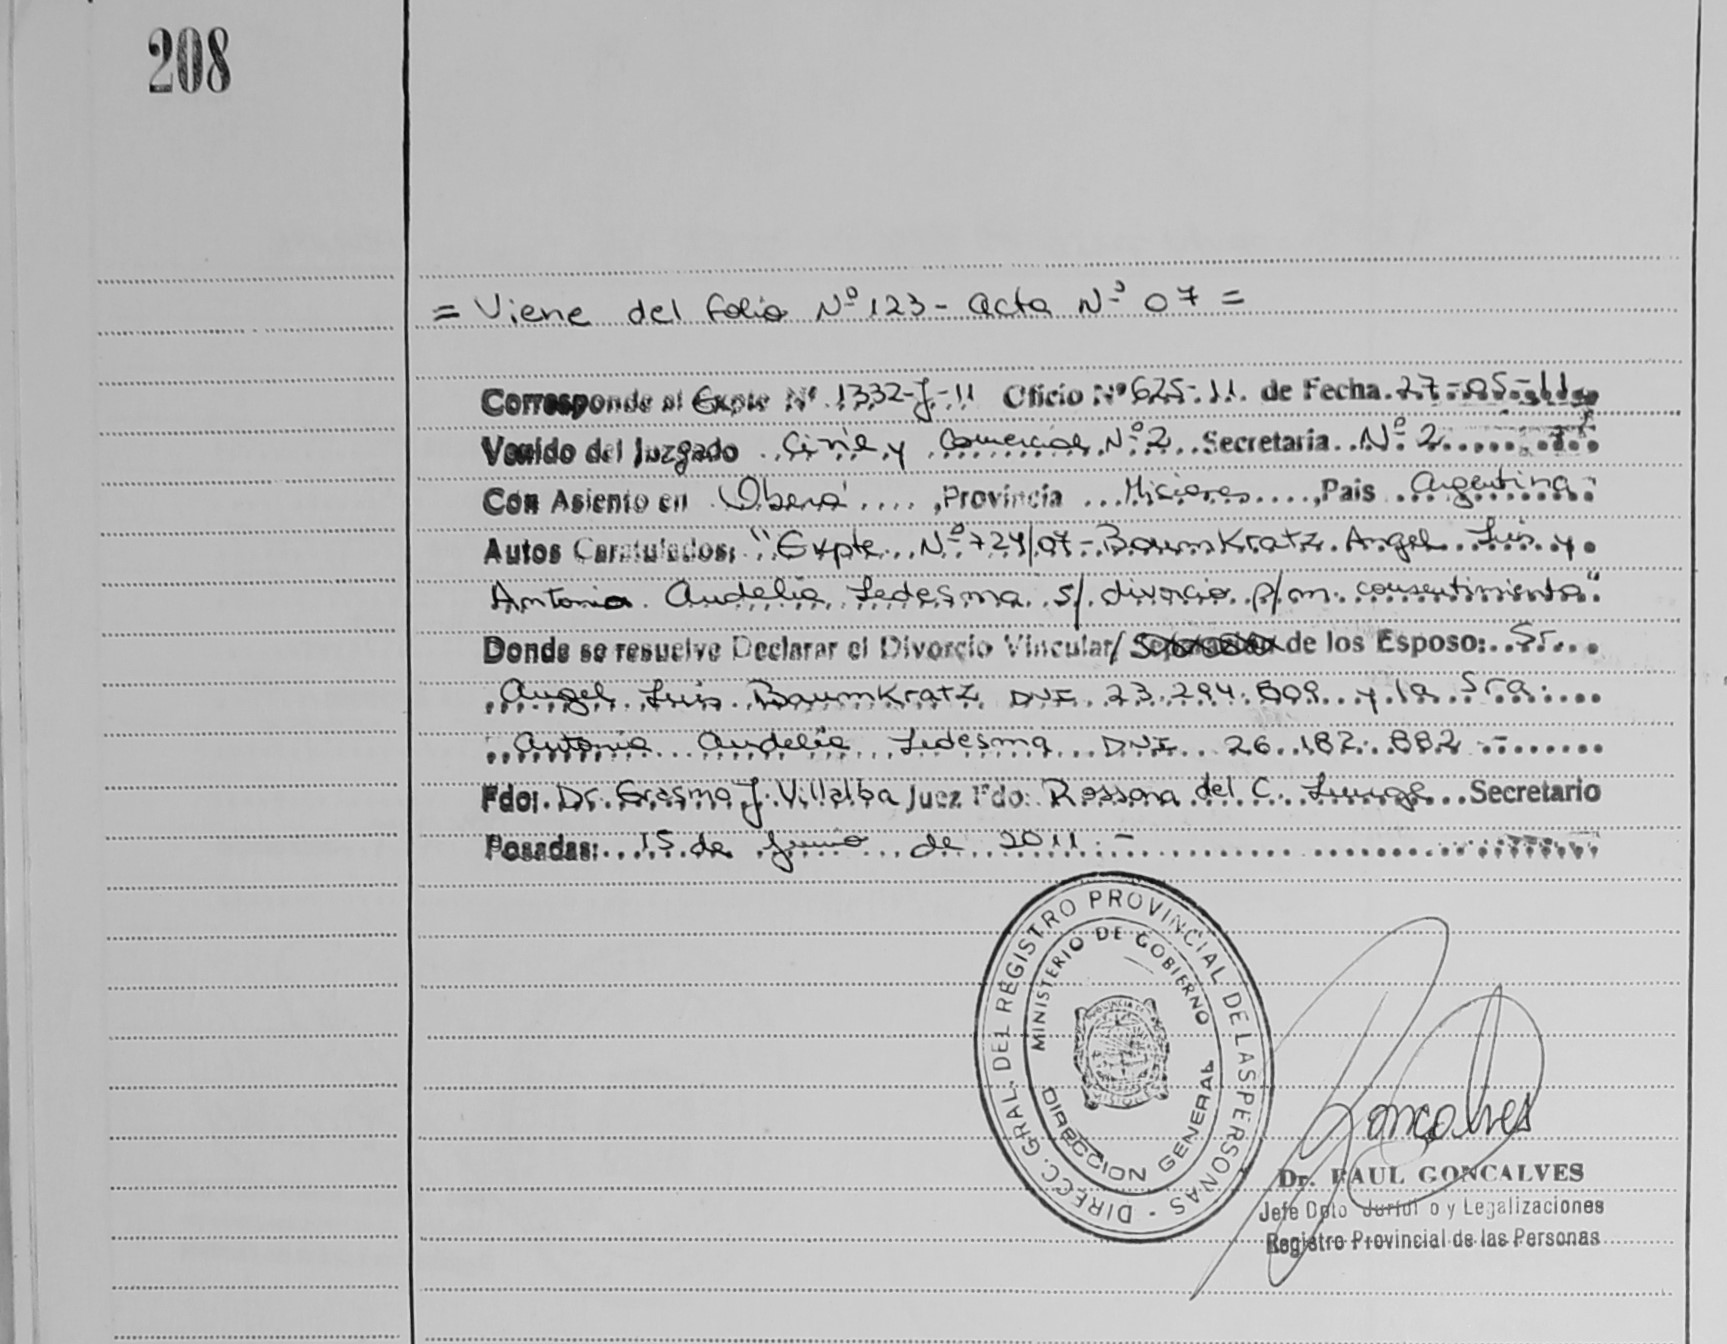 208
= Viene del folio Nº 123 - Acta Nº 07 =
Corresponde al Expte Nº 1332-J-11 Oficio Nº 625-11. de Fecha. 27-05-11.
Venido del Juzgado Civil y Comercial Nº 2 Secretaria Nº 2
Con Asiento en Oberá, Provincia Misiones, Pais Argentina-
Autos Caratulados: "Expte Nº 724/07 - BaumKratz Angel Luis y
Antonia Audelia Ledesma s/ divorcio p/m. consentimiento"
Donde se resuelve Declarar el Divorcio Vincular/ de los Esposo: Sr.
Angel Luis BaumKratz DNI 23.294.809 y la Sra.
Antonia Audelia Ledesma DNI 26.182.882 -
Fdo: Dr. Erasmo J. Villalba Juez Fdo: Rossana del C. Secretario
Posadas: 15 de Junio de 2011.-
DIRECC. GRAL. DEL REGISTRO PROVINCIAL DE LAS PERSONAS -
MINISTERIO DE GOBIERNO
DIRECCION GENERAL
Goncalves
Dr. RAUL GONCALVES
Jefe Dpto Juridi o y Legalizaciones
Registro Provincial de las Personas